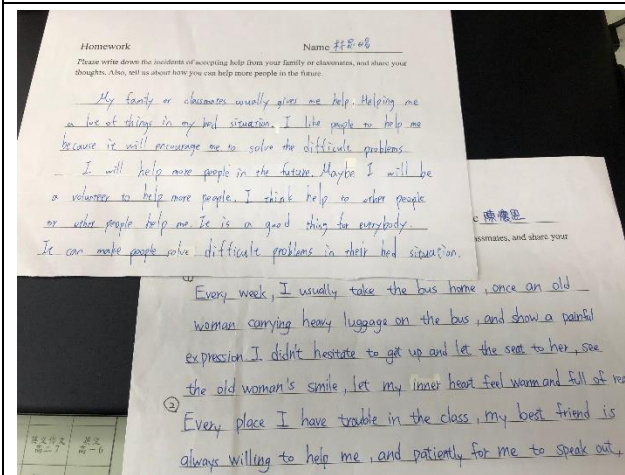 Homework
Name
Please write down the incidents of accepting help from your family or classmates, and share your
thoughts. Also, tell us about how you can help more people in the future.
My family or classmates usually gives me help. Helping me
a lot of things in my bed situation. I like people to help me
because it will encourage me to solve the difficult problems.
I will help more people in the future. Maybe I will be
a volunteer to help more people. I think help to other people
or other people help me. It is a good thing for everybody.
It can make people solve difficult problems in their bed situation.
陳
classmates, and share your
Every week, I usually take the bus home, once an old
woman carrying heavy luggage on the bus, and show a painful
expression I didn't hesitate to get up and let the seat to her, see
the old woman's smile, let my inner heart feel warm and full of
② Every place I have trouble in the class, my best friend is
always willing to help me, and patiently for me to speak out,
英文作文 英文
高二7 高一6